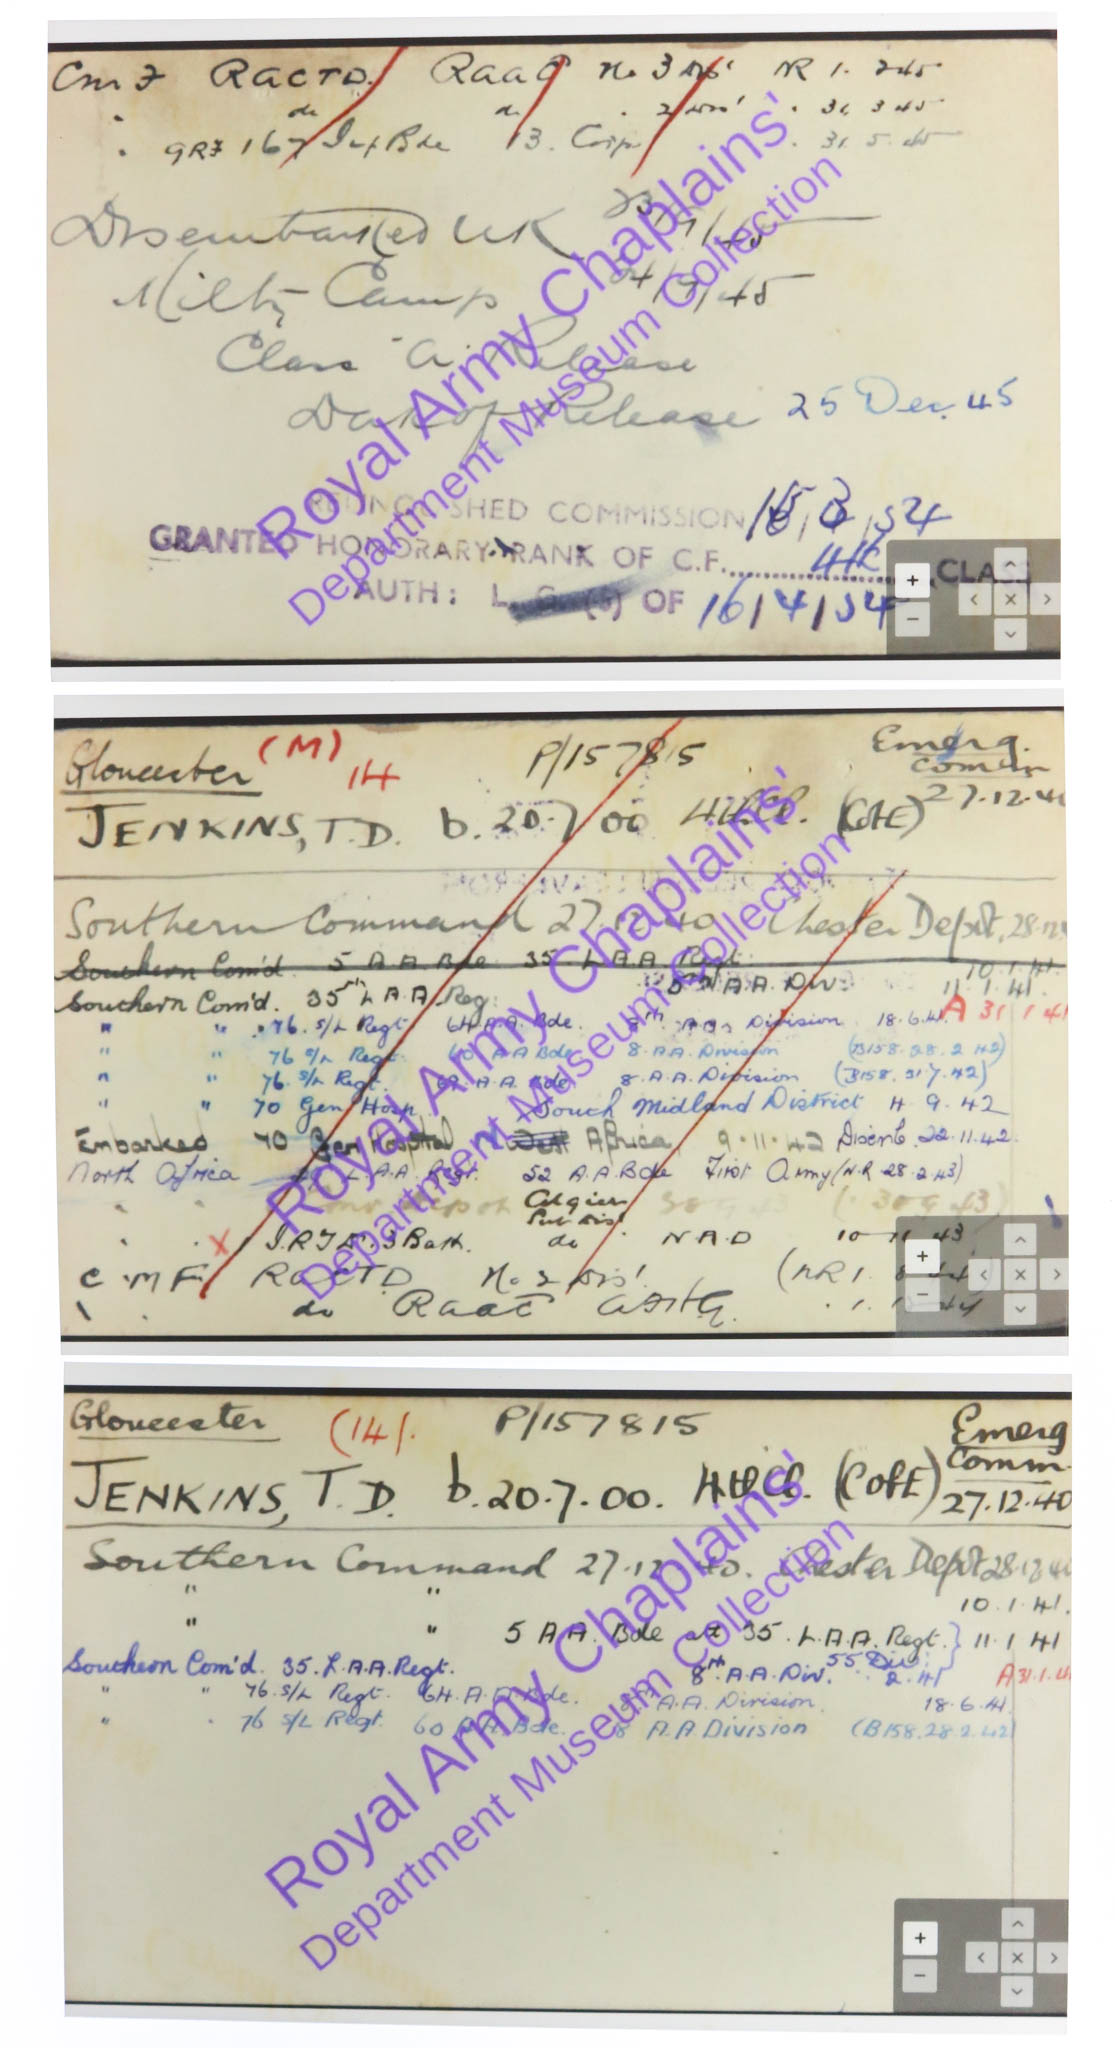 CMF RACTD. RAAC No 3 Dis' NR 1. 2 45
" do do . 2 Dis' . 31. 3 45
. GRF 167 Inf Bde 13. Corps . 31. 5. 45
Disembarked UK 23/9/45
Milty Camp 24/9/45
Class "A" Release
Date of Release 25 Dec. 45
RELINQUISHED COMMISSION 15/3/54
GRANTED HONORARY RANK OF C.F. 4th CLASS
AUTH: L. G. (S) OF 16/4/54
Royal Army Chaplains'
Department Museum Collection
Gloucester (M) 14 P/157815 Emerg. Comm
27.12.40
JENKINS, T.D. b. 20.7.00 (CofE)
Southern Command 27.12.40 Chester Depot, 28.12
Southern Com'd. 5 A.A. Bde 35 L.A.A. Regt. 10.1.41.
Southern Com'd. 35th L.A.A. Reg: A.A. Div: 11.1.41. A 31.1.41
" " 76. S/L Regt. 64 A.A. Bde. 8th A.A. Division 18.6.41
" " 76 S/L Regt. 60 A.A Bde 8. A.A. Division (B158.28.2.42)
" " 76. S/L Regt. 62 A.A. Bde 8. A.A. Division (B158. 31.7.42)
" " 70 Gen Hosp. South Midland District 4. 9. 42
Embarked 70 Gen Hospital West Africa 9.11.42 Disemb. 22.11.42.
North Africa L.A.A. Regt. 52 A.A. Bde First Army (N.R 28.2.43)
" Depot Algiers Sub Dist 30 9 43 (. 30 9 43)
" . X I.R.T.D. 3 Bath. do N.A.D 10 11 43
C.M.F. RACTD No 2 Dis'. (NR 1. 8 44
" . do RAAC . 1. 44
Royal Army Chaplains'
Department Museum Collection
Gloucester (14). P/157815 Emerg
Comm.
JENKINS, T.D. b. 20.7.00. (CofE) 27.12.40
Southern Command 27.12.40. Chester Depôt 28.12.40
" " 10.1.41.
" " 5 A.A. Bde att 35. L.A.A. Regt. } 11.1.41
55 Div.
Southern Com'd. 35. L.A.A. Regt. 8th A.A. Div. 2.41 A 31.1.4
" " 76. S/L Regt. 64. A.A. Bde. 8 A.A. Division. 18.6.41.
" . 76 S/L Regt. 60 A.A. Bde. 8 A.A Division (B158.28.2.42)
Royal Army Chaplains'
Department Museum Collection